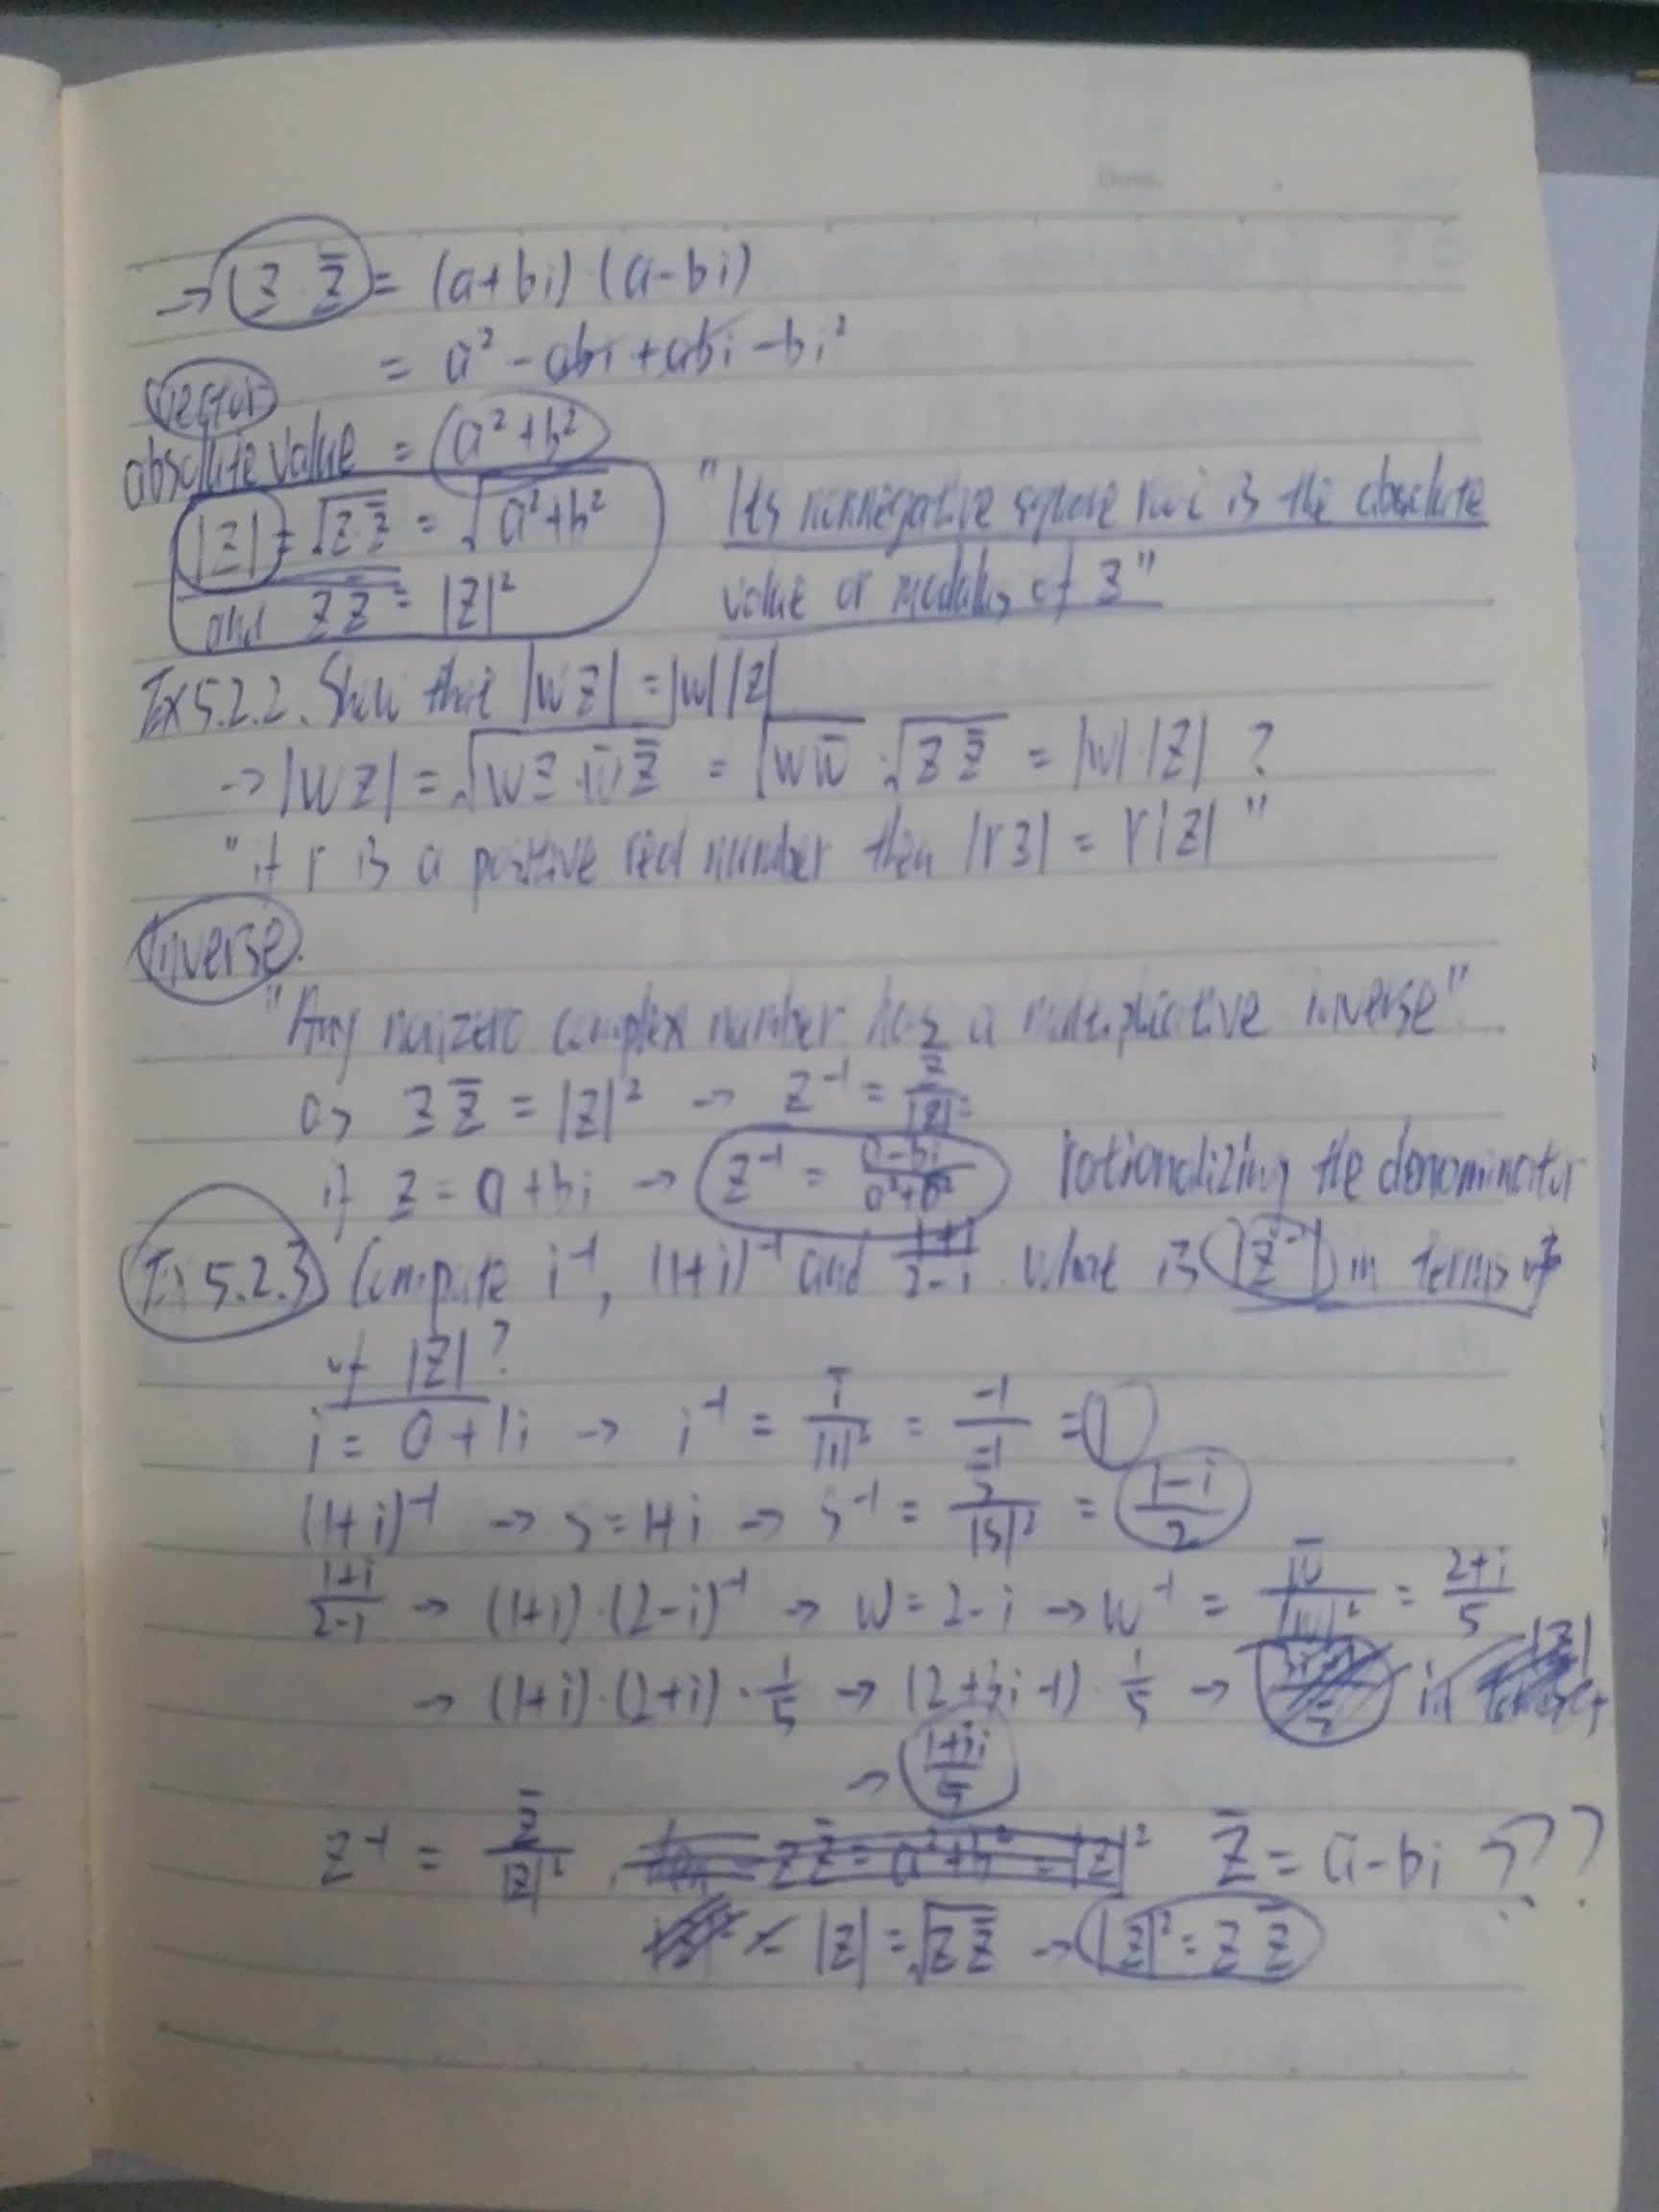 → z · z̄ = (a+bi)·(a-bi)
= a² - abi + abi - bi²
vector
absolute value = a²+b²
|z| = √z·z̄ = √a²+b²
and z z̄ = |z|²
"Its nonnegative square root is the absolute
value or modulus of z"
Ex 5.2.2. Show that |wz| = |w||z|
→ |wz| = √wz·w̄z̄ = √ww̄ · √z z̄ = |w|·|z| ?
"if r is a positive real number then |rz| = r|z|"
Inverse.
"Any nonzero complex number has a multiplicative inverse"
as z z̄ = |z|² → z⁻¹ = z̄/|z|²
if z = a+bi → z⁻¹ = a-bi/a²+b² rationalizing the denominator
Ex 5.2.3 Compute i⁻¹, (1+i)⁻¹ and 1+i/2-i. What is |z⁻¹| in terms of
of |z|?
i = 0+1i → i⁻¹ = ī/|i|² = -1/-1 = 1
(1+i)⁻¹ → s = 1+i → s⁻¹ = s̄/|s|² = 1-i/2
1+i/2-i → (1+i)·(2-i)⁻¹ → w = 2-i → w⁻¹ = w̄/|w|² = 2+i/5
→ (1+i)·(2+i)·1/5 → (2+3i-1)·1/5 → in |z|
→ 1+3i/5
z⁻¹ = z̄/|z|² , z z̄ = a²+b² = |z|² z̄ = a-bi ??
|z| = √z z̄ → |z|² = z z̄